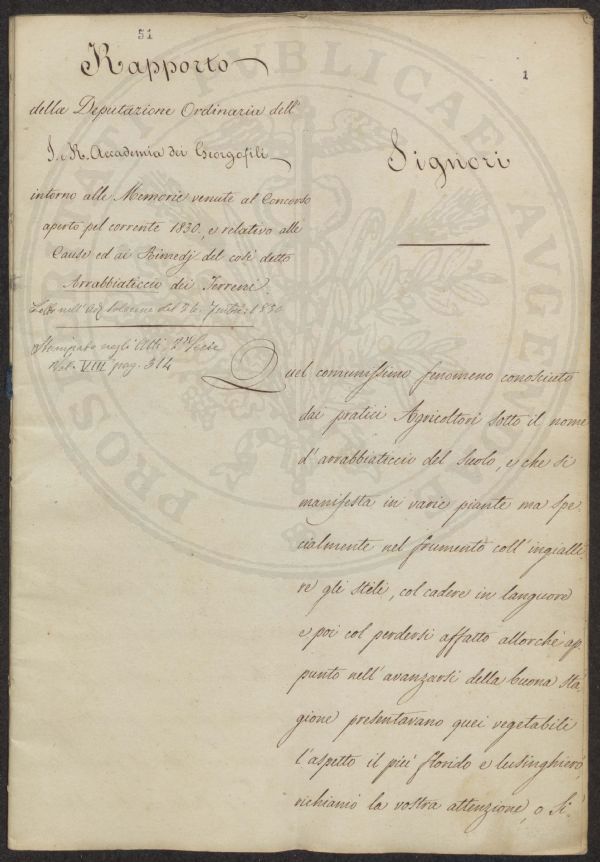 51
1
Rapporto
della Deputazione Ordinaria dell'
I. e R. Accademia dei Georgofili
intorno alle Memorie venute al Concorso
aperto pel corrente 1830, e relativo alle
Cause ed ai Rimedj del così detto
Arrabbiaticcio dei Terreni.
Letto nell'Ad. Solenne del 26. 7mbre: 1830
Stampato negli Atti 2da Serie
Vol. VIII pag. 314
Signori
Quel comunissimo fenomeno conosciuto
dai pratici Agricoltori sotto il nome
d'arrabbiaticcio del suolo, e che si
manifesta in varie piante ma spe
cialmente nel frumento coll'ingialli
re gli steli, col cadere in languore
e poi col perdersi affatto allorchè ap
punto nell'avanzarsi della buona sta
gione presentavano quei vegetabili
l'aspetto il più florido e lusinghiero,
richiamò la vostra attenzione, o Si
PROSPERITATI PVBLICAE AVGENDAE